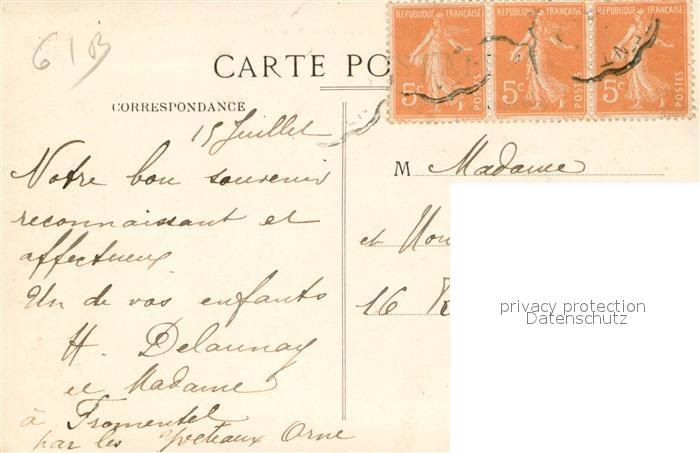 61B
REPUBLIQUE FRANÇAISE REPUBLIQUE FRANÇAISE REPUBLIQUE FRANÇAISE
5c POSTES 5c POSTES 5c POSTES
CARTE PO
CORRESPONDANCE
15 Juillet
Notre bon souvenir
reconnaissant et
affectueux
Un de vos enfants
H. Delaunay
et Madame
à Fromentel
par les Yveteaux Orne
M Madame
et
16
privacy protection
Datenschutz